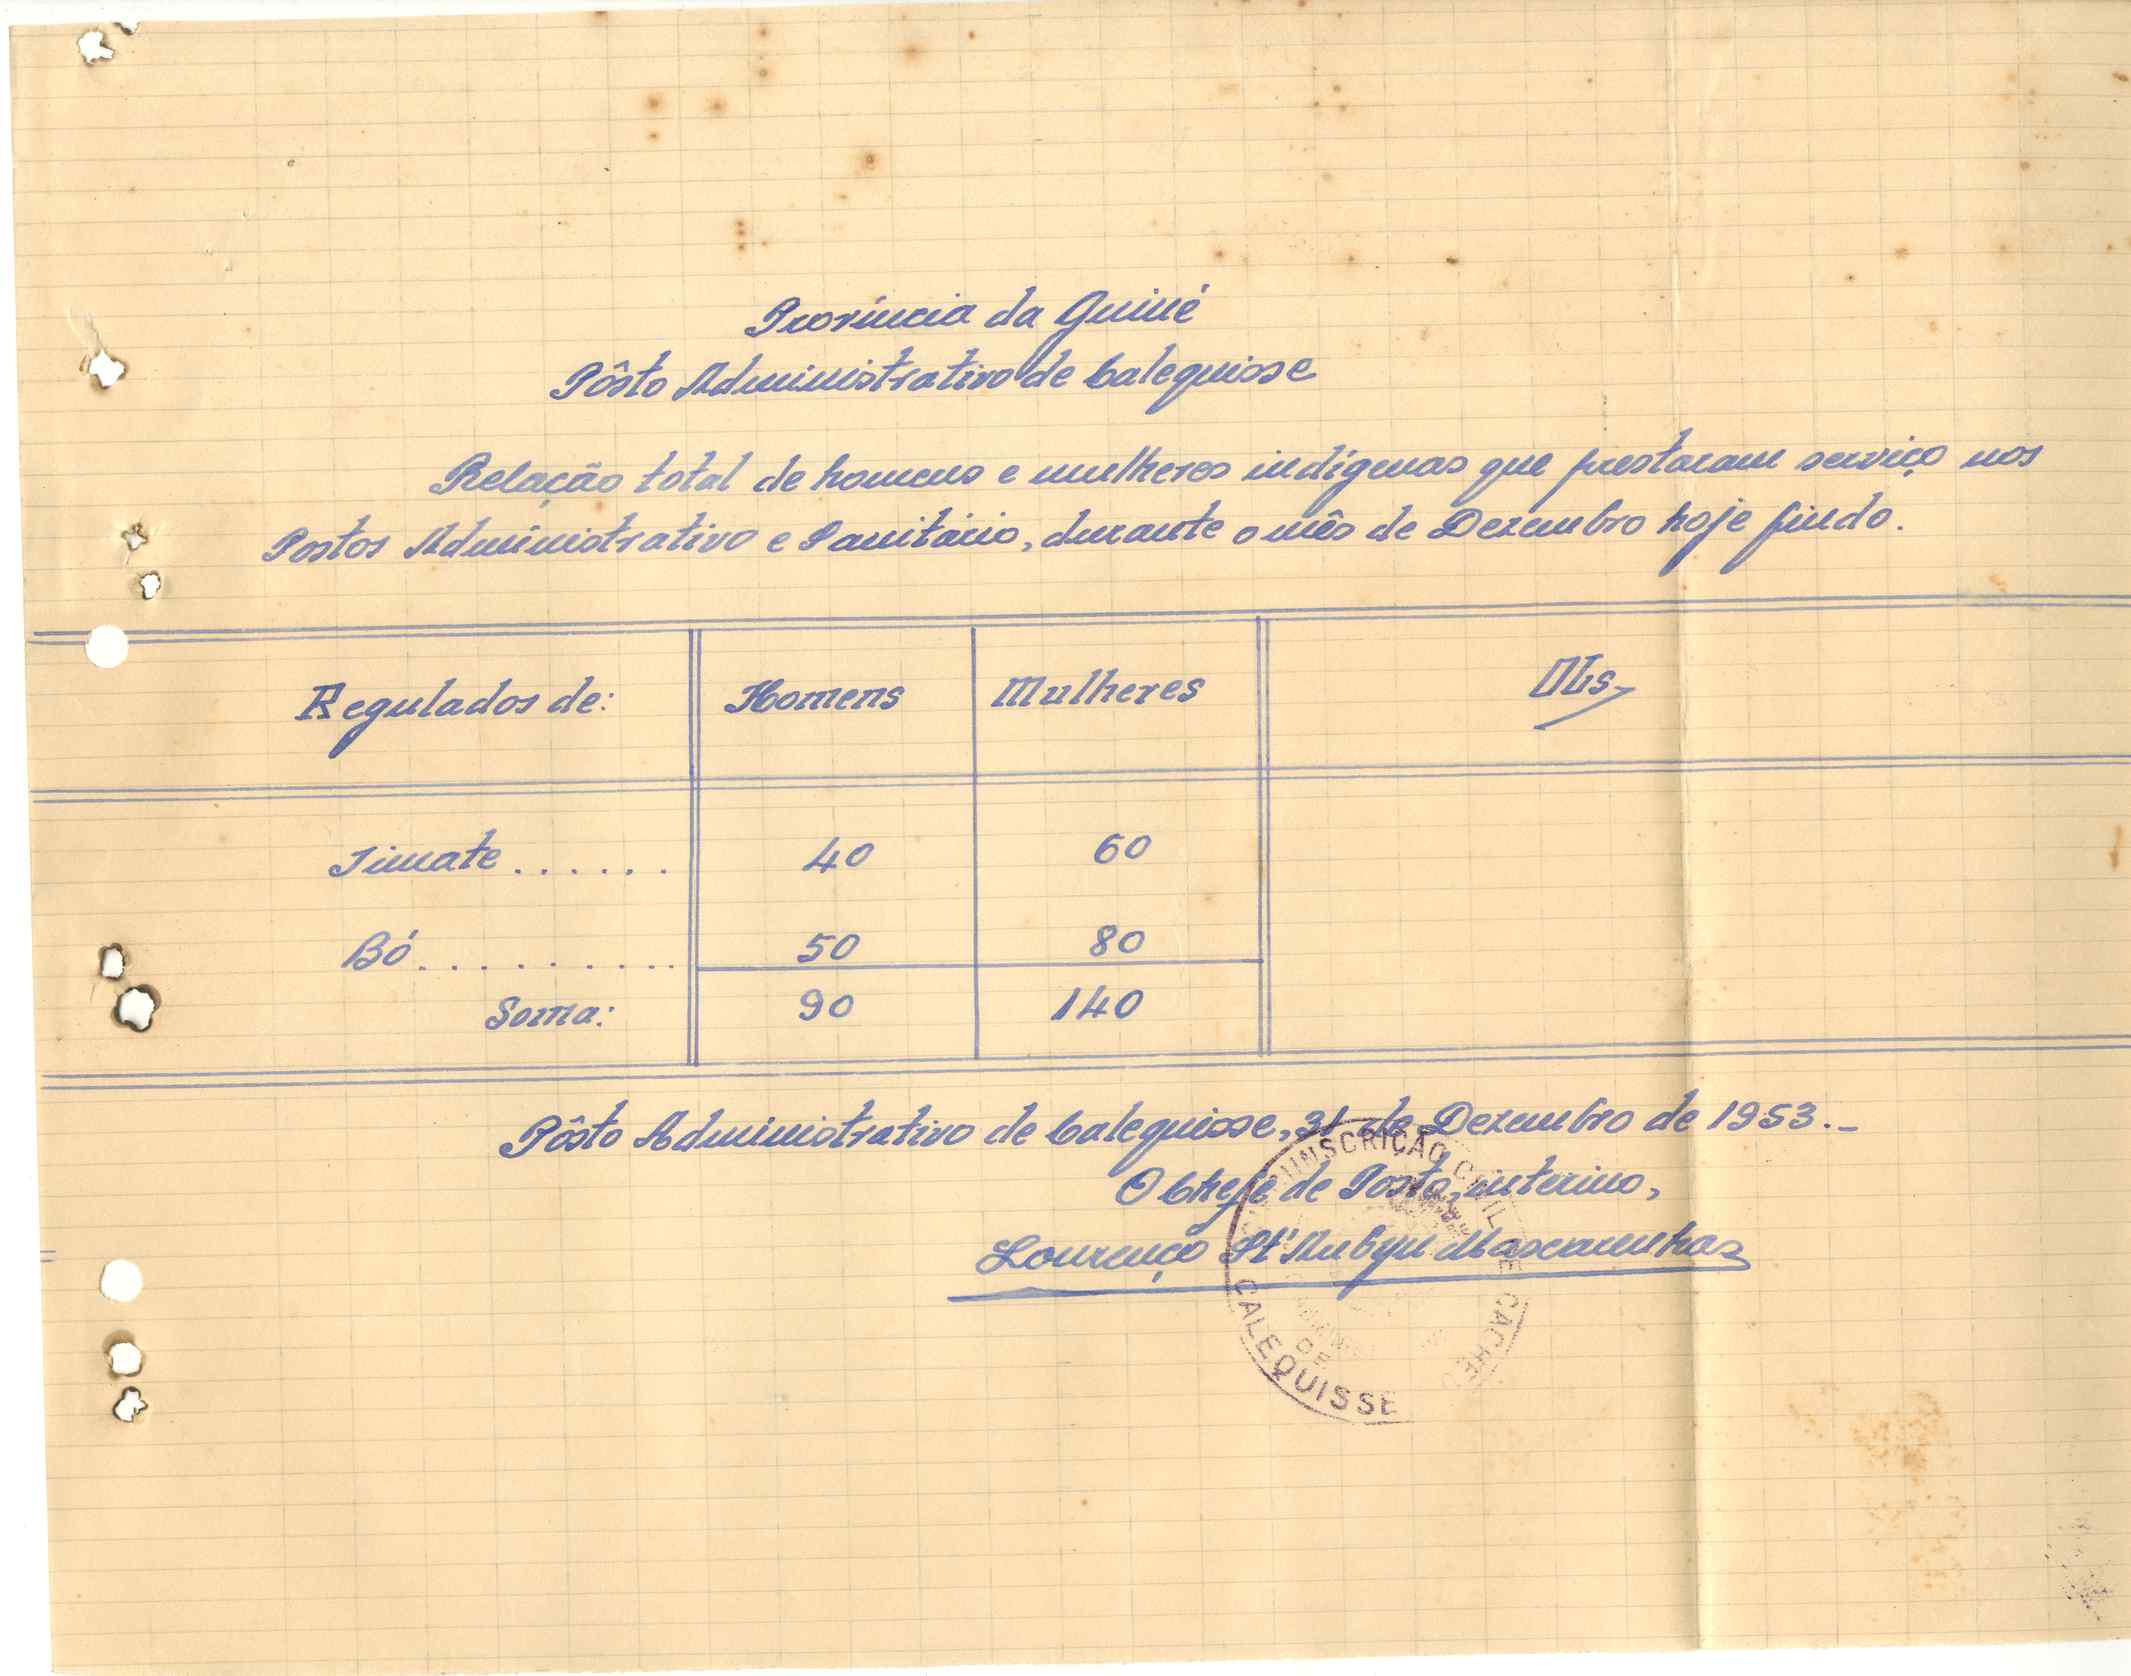 Província da Guiné
Pôsto Administrativo de Calequisse
Relação total de homens e mulheres indígenas que prestaram serviço nos
Postos Administrativo e Sanitário, durante o mês de Dezembro hoje findo.
Regulados de: Homens Mulheres Obs.
Timate...... 40 60
Bó.......... 50 80
Soma: 90 140
Pôsto Administrativo de Calequisse, 31 de Dezembro de 1953.-
O Chefe de Posto, interino,
Lourenço St' Aubyn Mascarenhas
CALEQUISSE